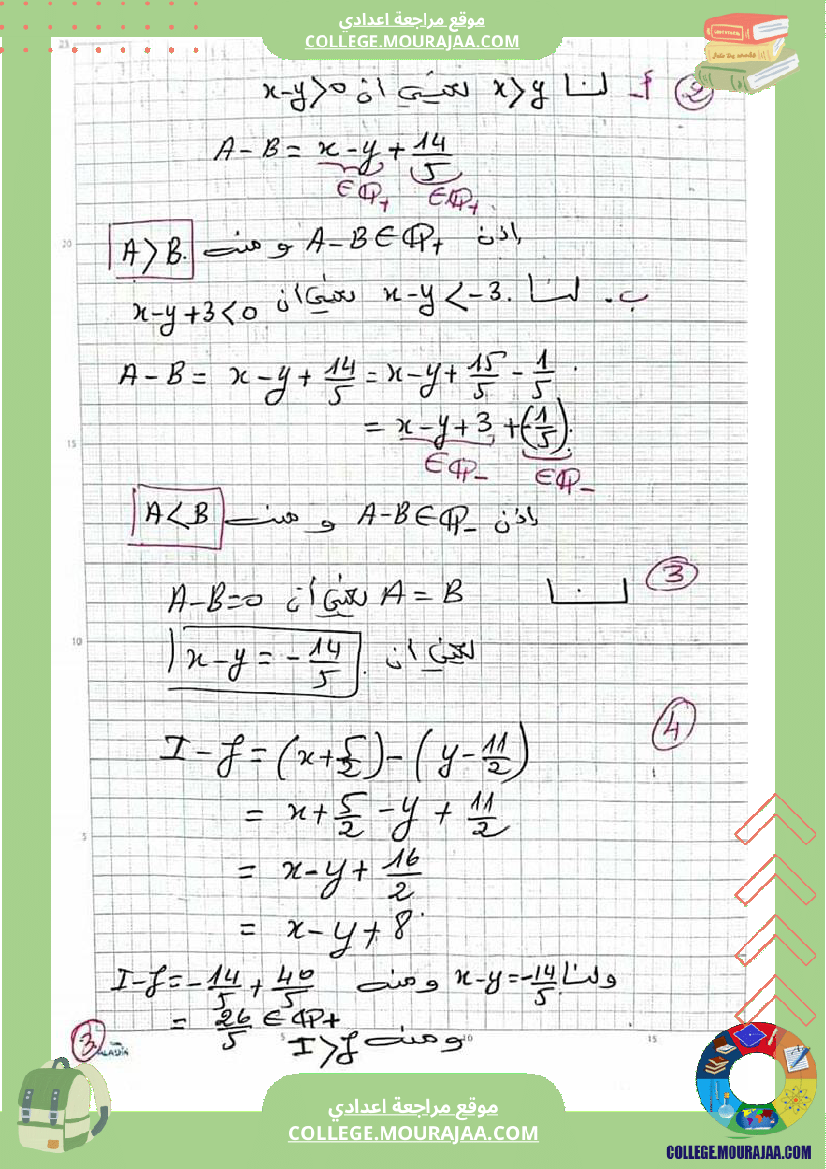 موقع مراجعة اعدادي
COLLEGE.MOURAJAA.COM
② أ- لنا x>y يعني ان x-y>0
A-B = x-y + 14/5
∈ℚ+ ∈ℚ+
إذن A-B∈ℚ+ ومنه A>B
ب. لنا x-y<-3 يعني ان x-y+3<0
A-B = x-y+14/5 = x-y+15/5-1/5
= x-y+3+(-1/5)
∈ℚ- ∈ℚ-
إذن A-B∈ℚ- ومنه A<B
③ لنا A=B يعني ان A-B=0
يعني ان x-y=-14/5
④
I-J=(x+5/2)-(y-11/2)
= x+5/2-y+11/2
= x-y+16/2
= x-y+8
ولنا x-y=-14/5 ومنه I-J=-14/5+40/5
= 26/5 ∈ℚ+
ومنه I>J
3
20
15
10
5
5
10
15
موقع مراجعة اعدادي
COLLEGE.MOURAJAA.COM
COLLEGE.MOURAJAA.COM